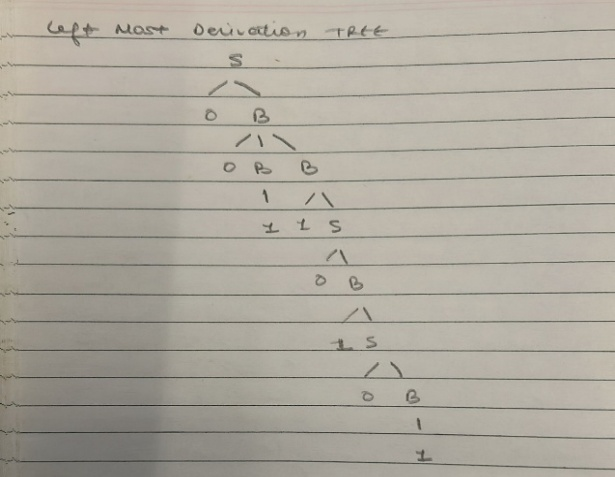 Left Most Derivation TREE
S
0 B
0 B B
1 1 S
0 B
1 S
0 B
1